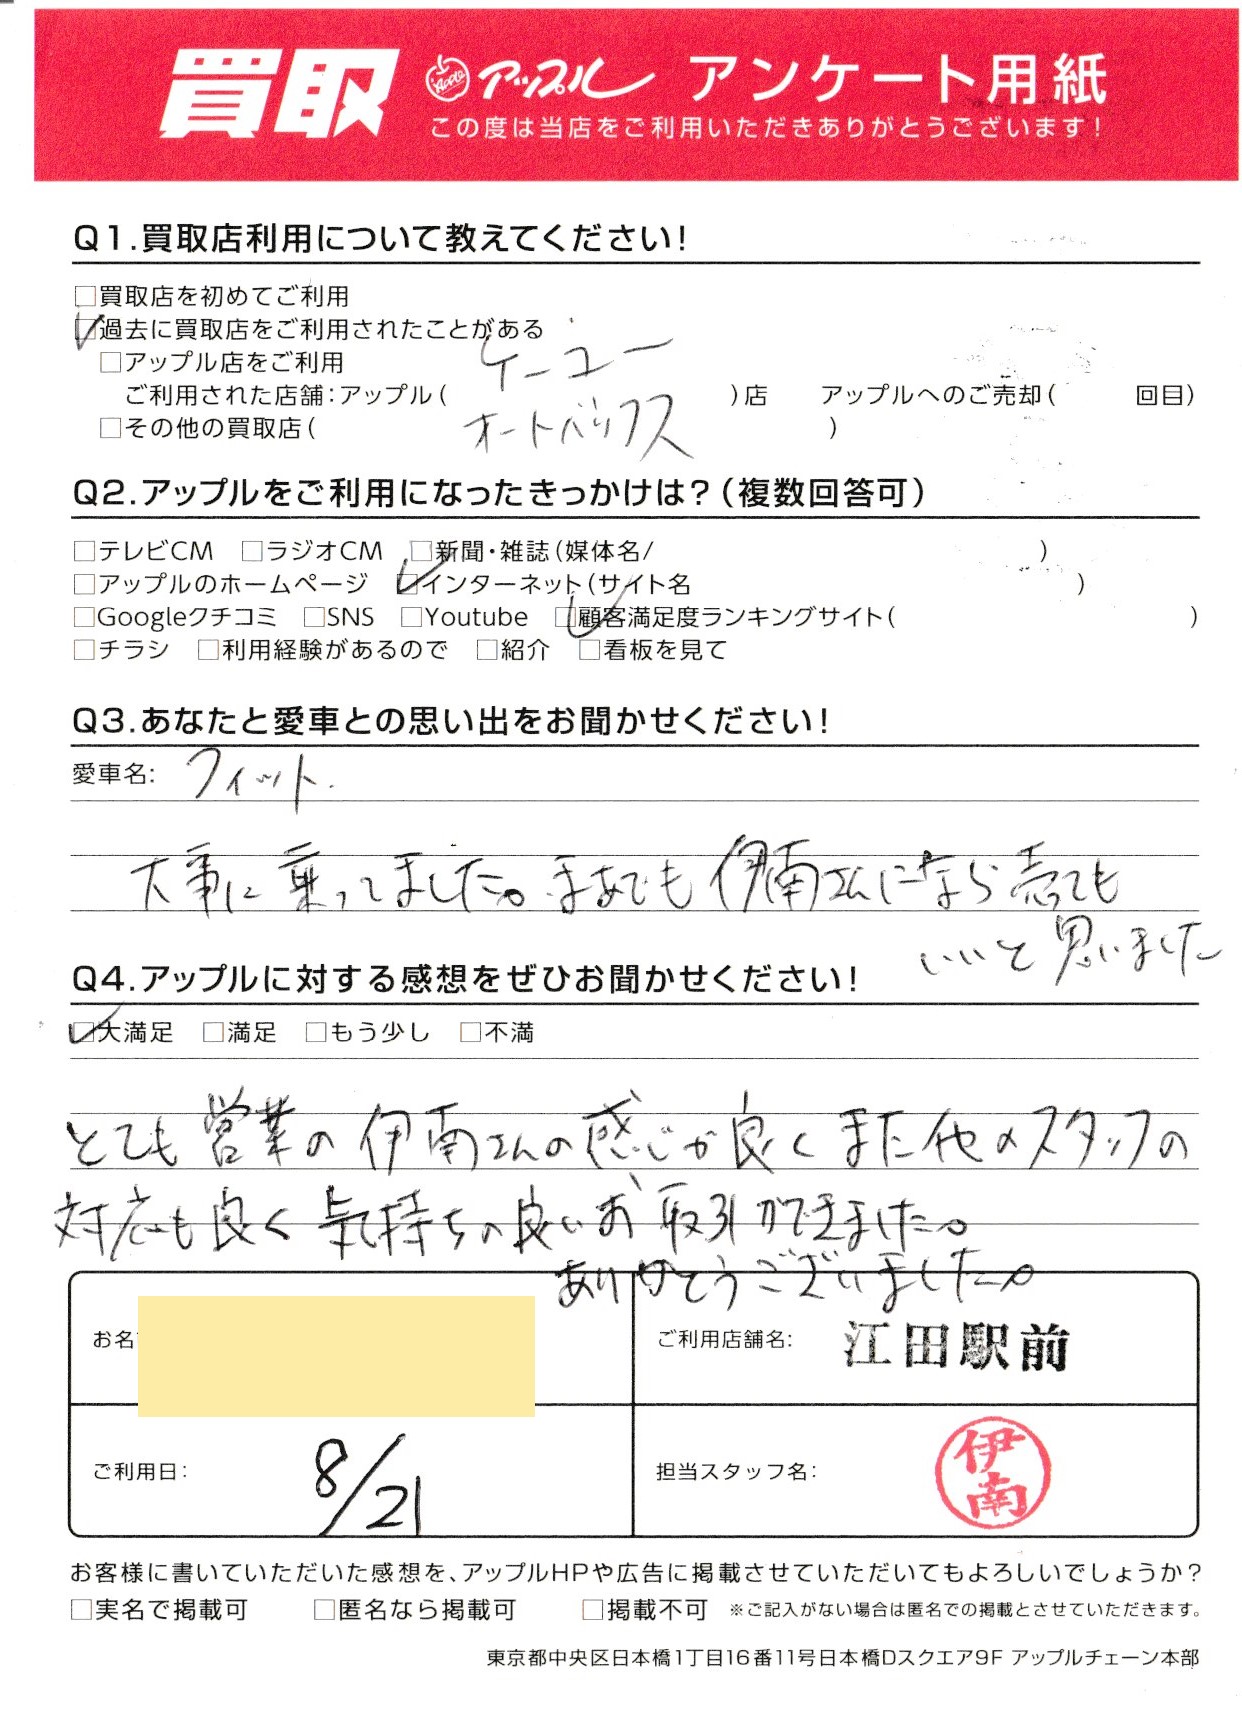 買取 Apple アップル アンケート用紙
この度は当店をご利用いただきありがとうございます!
Q1.買取店利用について教えてください!
□買取店を初めてご利用
☑過去に買取店をご利用されたことがある
□アップル店をご利用
ケーユー
ご利用された店舗:アップル( )店 アップルへのご売却( 回目)
□その他の買取店( オートバックス )
Q2.アップルをご利用になったきっかけは?(複数回答可)
□テレビCM □ラジオCM □新聞・雑誌(媒体名/ )
□アップルのホームページ ☑インターネット(サイト名 )
□Googleクチコミ □SNS □Youtube ☑顧客満足度ランキングサイト( )
□チラシ □利用経験があるので □紹介 □看板を見て
Q3.あなたと愛車との思い出をお聞かせください!
愛車名: フィット.
大事に乗ってました。まあでも伊南さんになら売っても
いいと思いました
Q4.アップルに対する感想をぜひお聞かせください!
☑大満足 □満足 □もう少し □不満
とても営業の伊南さんの感じが良くまた他のスタッフの
対応も良く気持ちの良いお取引ができました。
ありがとうございました。
お名 ご利用店舗名: 江田駅前
ご利用日: 8/21 担当スタッフ名: 伊南
お客様に書いていただいた感想を、アップルHPや広告に掲載させていただいてもよろしいでしょうか?
□実名で掲載可 □匿名なら掲載可 □掲載不可 ※ご記入がない場合は匿名での掲載とさせていただきます。
東京都中央区日本橋1丁目16番11号日本橋Dスクエア9F アップルチェーン本部